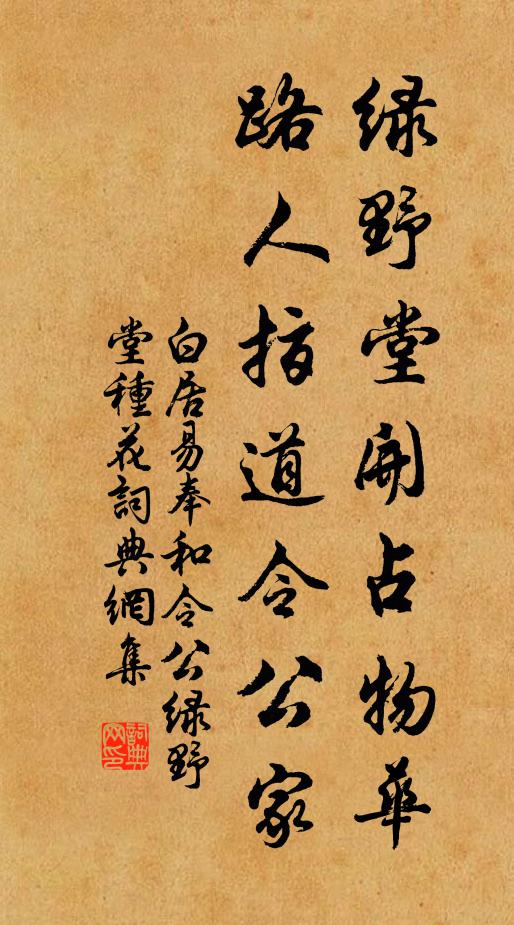 绿野堂開占物華
路人指道令公家
白居易奉和令公绿野
堂種花詞典網集
詞典
网印